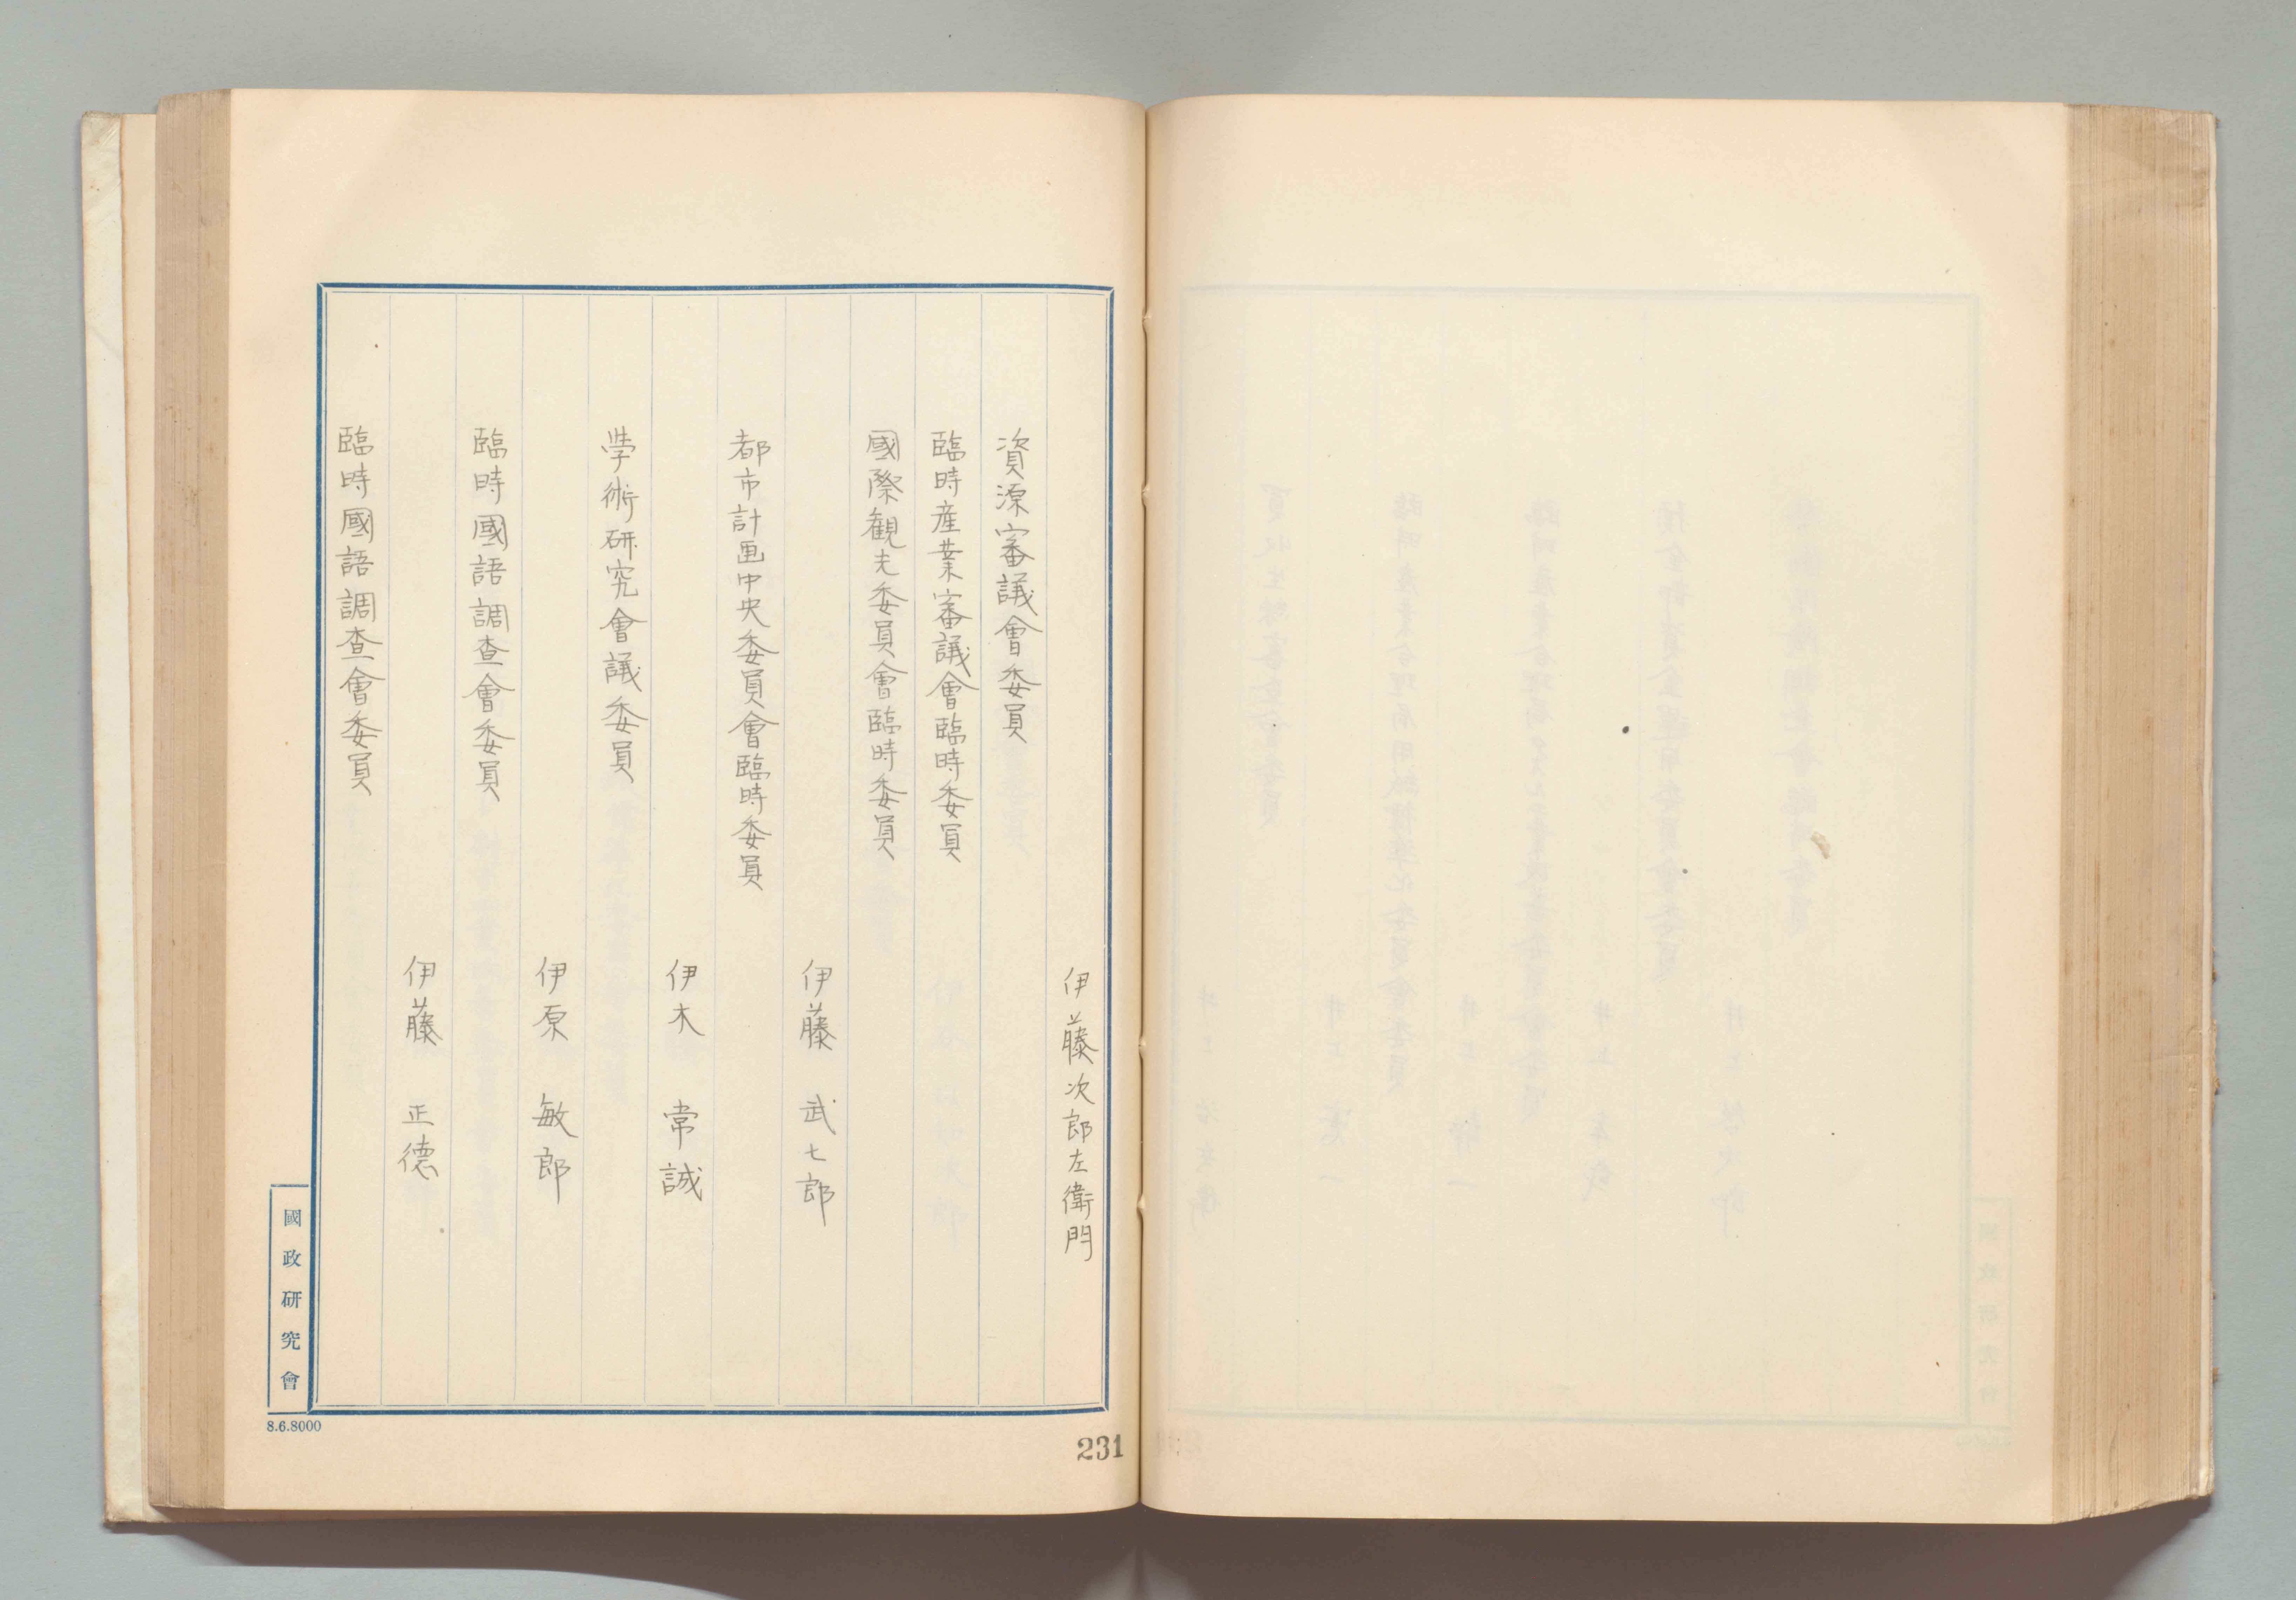 伊藤次郎左衛門
資源審議會委員
臨時産業審議會臨時委員
國際観光委員會臨時委員
伊藤 武七郎
都市計画中央委員會臨時委員
伊木 常誠
学術研究會議委員
伊原 敏郎
臨時國語調査會委員
伊藤 正徳
臨時國語調査會委員
國政研究會
8.6.8000
231